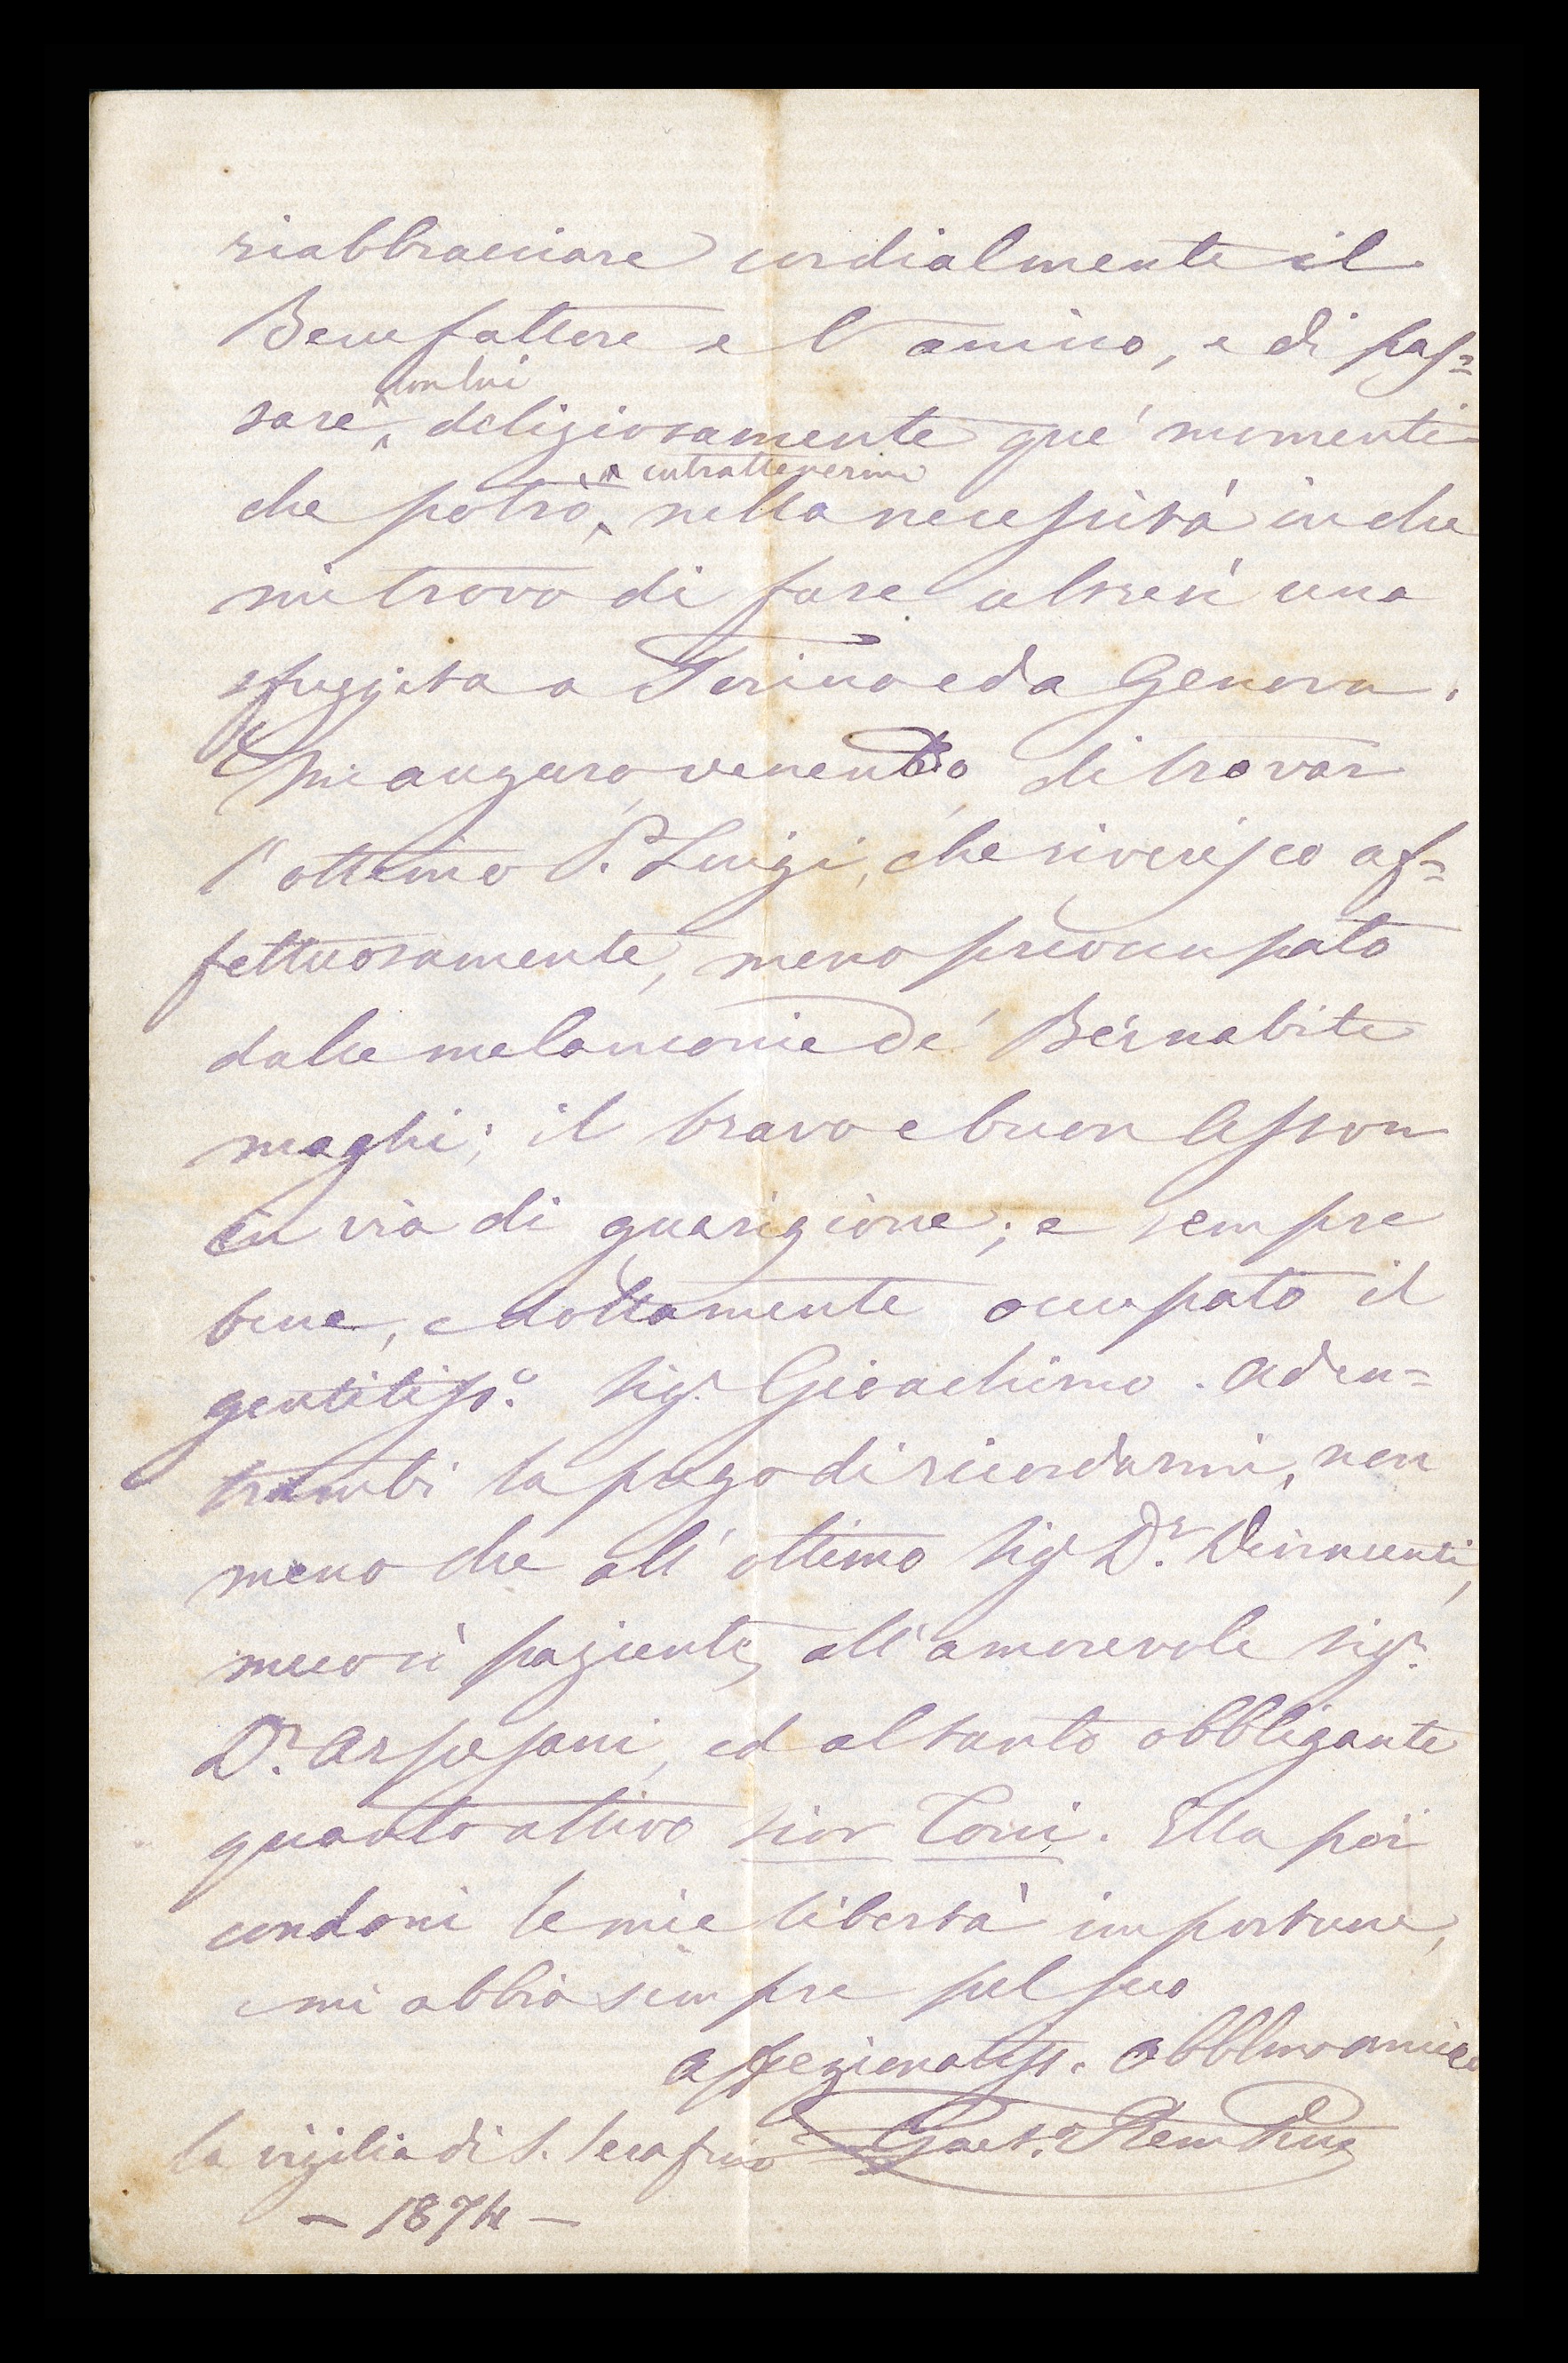 riabbracciare cordialmente il
Benefattore e l'amico, e di pas=
con lui
sare, deliziosamente que' momenti
intrattenermi
che potrò, nella necessità in che
mi trovo di fare altresì una
fuggita a Torino ed a Genova.
Mi auguro, venendo, di trovar
l'ottimo P. Luigi, che riverisco af=
fettuosamente, meno preocupato
dalle melanconie de' Bernabiti
maghi; il bravo e buon Asson
in via di guarigione; e sempre
bene, e dottamente occupato il
gentiliss.o Sig.r Gioachimo. Ad en=
trambi la prego di ricordarmi, non
meno che all'ottimo Sig.r D.r
meco sì paziente, all'amorevole Sig.r
D.r Arpesani, ed al tanto obbligante
quanto attivo sior Toni. Ella poi
condoni le mie libertà importune,
e mi abbia sempre pel suo
affezionatiss. obblmo amico
la vigilia di S. Serafino Gaet.o
- 1874 -